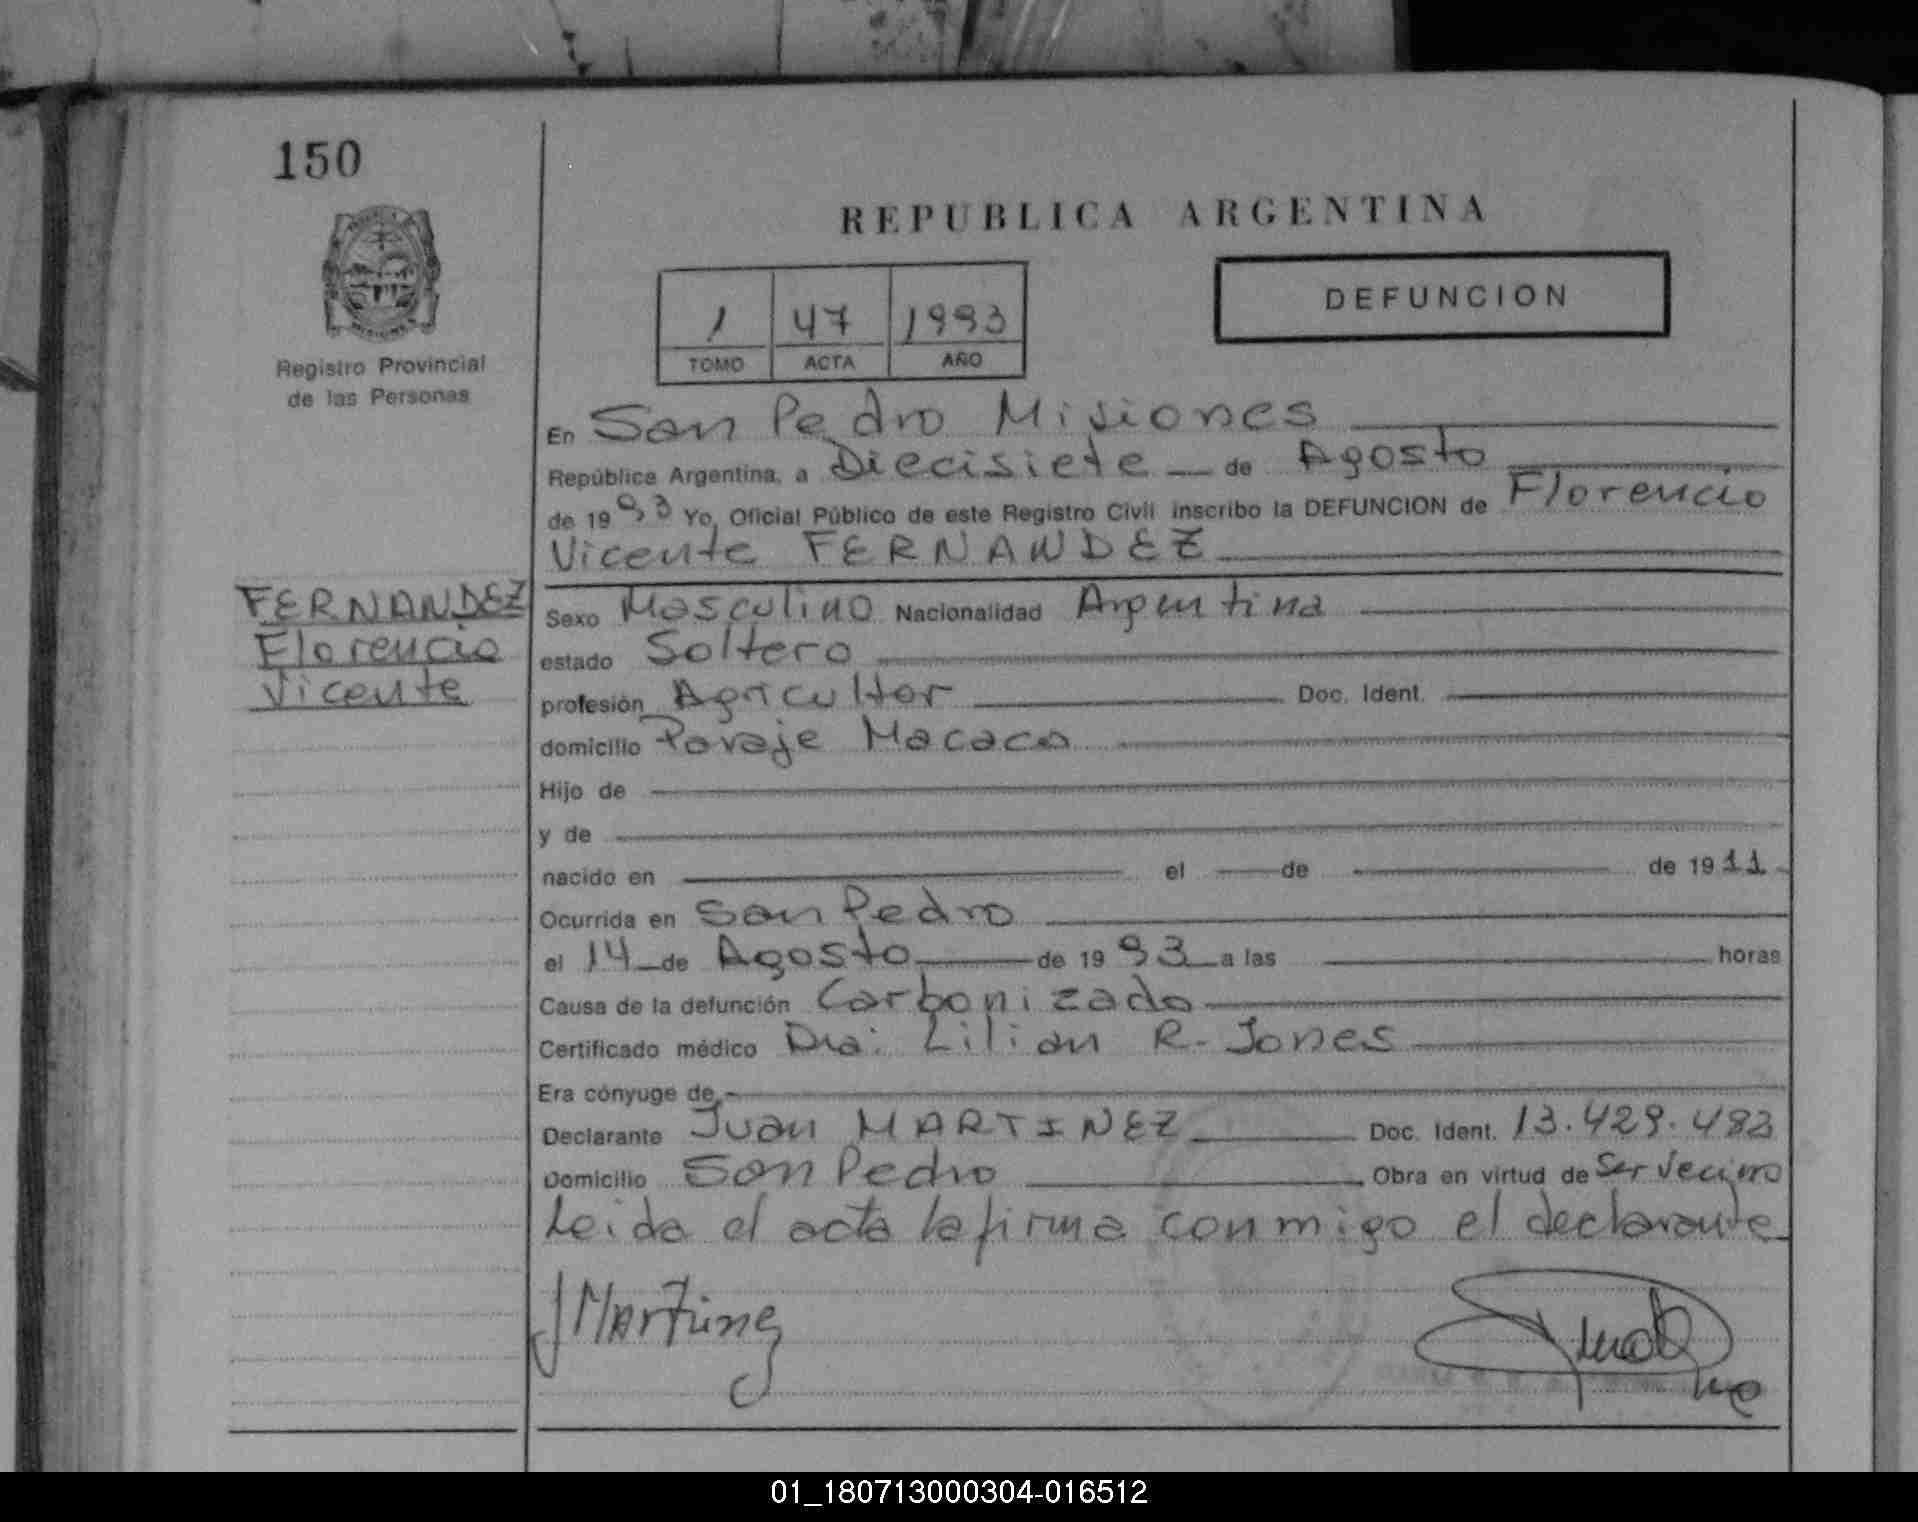 150
REPUBLICA ARGENTINA
DEFUNCION
1 47 1993
TOMO ACTA AÑO
Registro Provincial
de las Personas
En San Pedro Misiones
República Argentina, a Diecisiete de Agosto
de 1993 Yo, Oficial Público de este Registro Civil inscribo la DEFUNCION de Florencio
Vicente FERNANDEZ
FERNANDEZ
Florencio
Vicente
Sexo Masculino Nacionalidad Argentina
estado Soltero
profesión Agricultor Doc. Ident.
domicilio Paraje Macaca
Hijo de
y de
nacido en el de de 1911
Ocurrida en San Pedro
el 14 de Agosto de 1993 a las horas
Causa de la defunción Carbonizado
Certificado médico Dra: Lilian R. Jones
Era cónyuge de
Declarante Juan MARTINEZ Doc. Ident. 13.429.483
Domicilio San Pedro Obra en virtud de Ser vecino
Leida el acta la firma conmigo el declarante
J Martinez
01_180713000304-016512